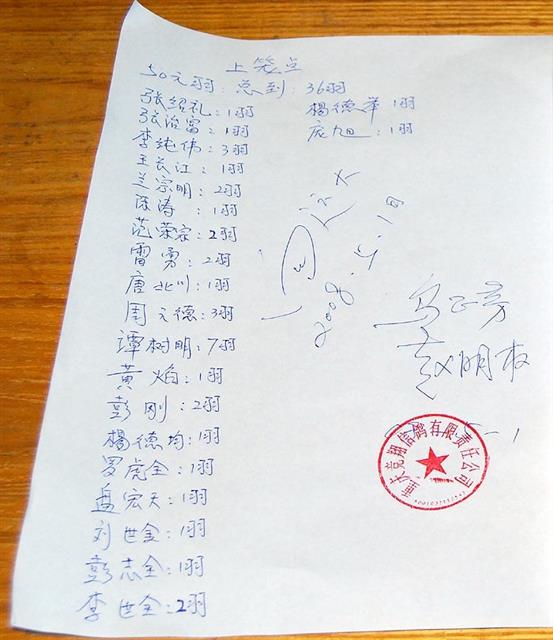 上笼点
50元羽: 总到: 36羽
张绍礼: 1羽
张治富: 1羽
李纯伟: 3羽
王长江: 1羽
兰宗明: 2羽
陈涛: 1羽
范荣宗: 2羽
雷勇: 2羽
唐北川: 1羽
周天德: 3羽
谭树明: 7羽
黄焰: 1羽
彭刚: 2羽
楊德均: 1羽
罗虎全: 1羽
盘宏天: 1羽
刘世金: 1羽
彭志全: 1羽
李世全: 2羽
楊德華 1羽
庞旭: 1羽
2008.5.1日
赵明
重庆竞翔信鸽有限责任公司